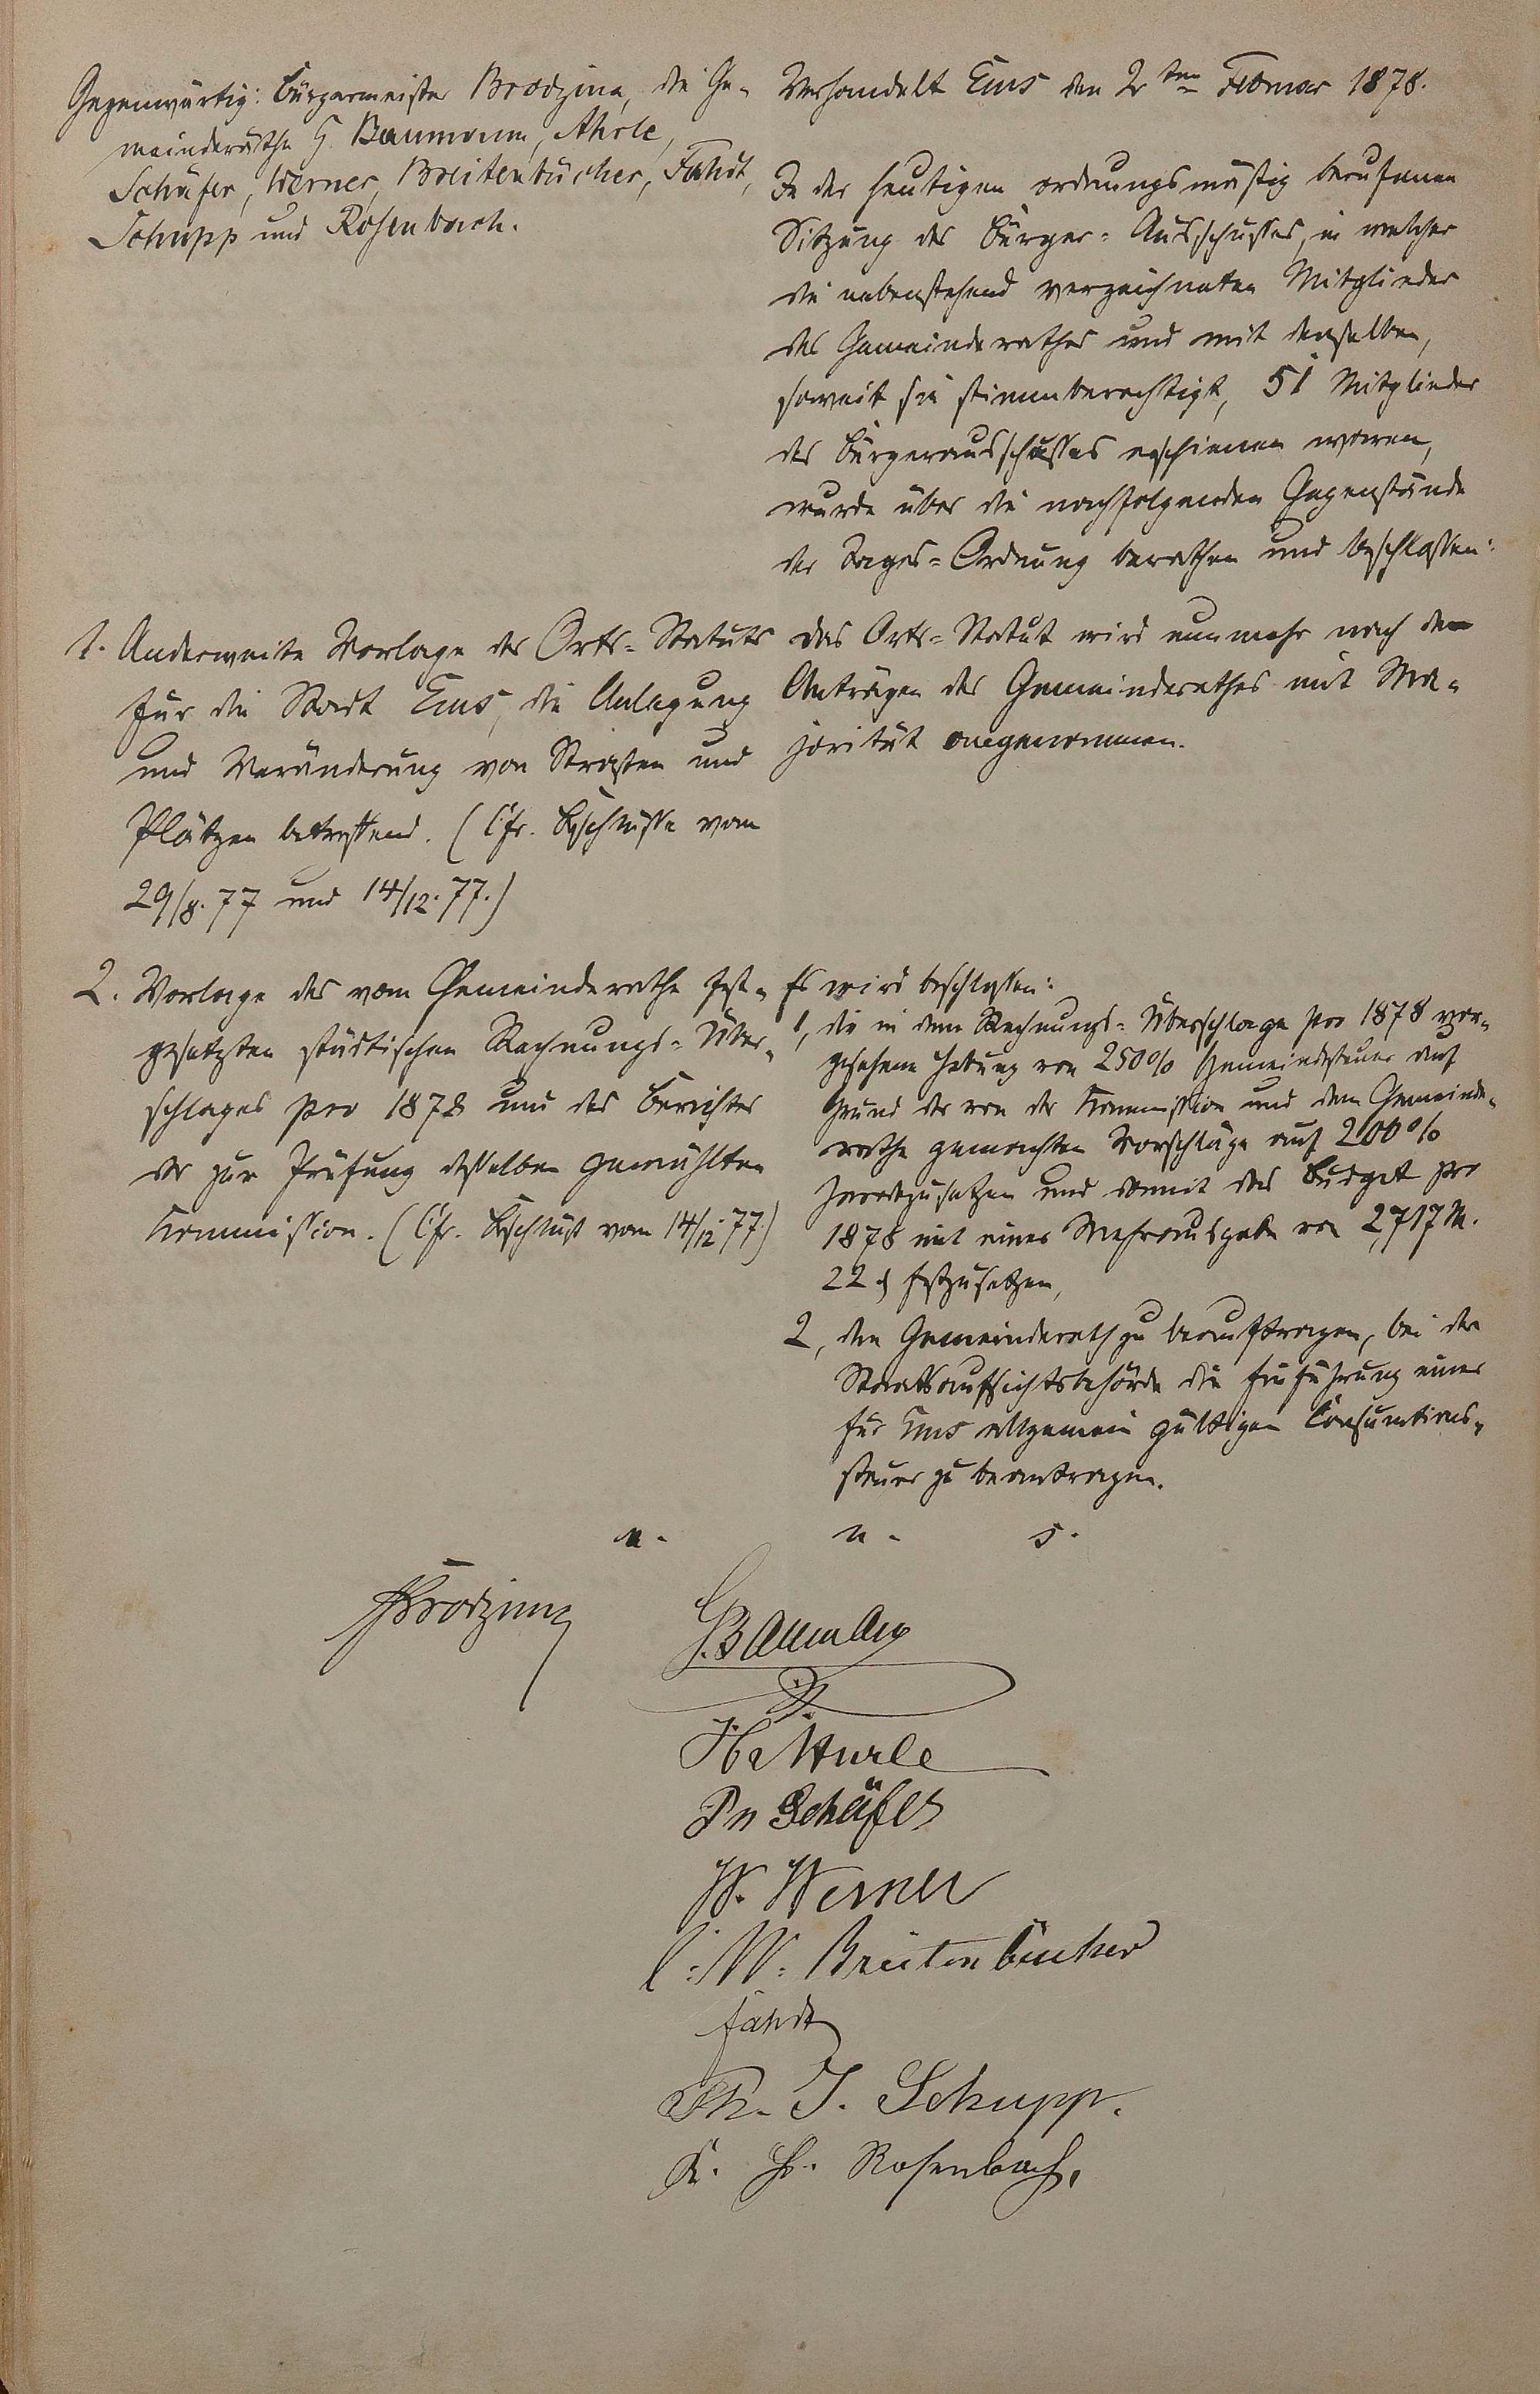 Gegenwärtig: Bürgermeister Brodzina, die Ge-
meinderäthe G. Baumann, Ahrle,
Schäfer, Werner, Breitenbücher, Fahdt,
Schupp und Rosenbach.
Verhandelt Ems den 2ten Februar 1878.
In der heutigen ordnungsmäßig berufenen
Sitzung des Bürger-Ausschusses, in welcher
die nebenstehend verzeichneten Mitglieder
des Gemeinderathes und mit denselben,
soweit sie stimmberechtigt, 51 Mitglieder
des Bürgerausschusses erschienen waren,
wurde über die nachfolgenden Gegenstände
der Tages-Ordnung berathen und beschlossen:
1. Anderweite Vorlage des Orts-Statuts
für die Stadt Ems, die Anlegung
und Veränderung von Straßen und
Plätzen betreffend. (Cfr. Beschlüsse vom
29/8.77 und 14/12.77.)
Das Orts-Statut wird nunmehr nach den
Anträgen des Gemeinderathes mit Ma-
jorität angenommen.
2. Vorlage des vom Gemeinderathe fest-
gesetzten städtischen Rechnungs-Über-
schlages pro 1878 und des Berichtes
der zur Prüfung desselben gewählten
Kommission. (Cfr. Beschluß vom 14/12.77.)
Es wird beschlossen:
1, die in dem Rechnungs-Überschlage pro 1878 vor-
gesehene Hebung von 250% Gemeindesteuer auf
Grund der von der Kommission und dem Gemeinde-
rathe gemachten Vorschläge auf 200%
herabzusetzen und somit das Budget pro
1878 mit einer Mehrausgabe von 2,717 M.
22 ₰ festzusetzen,
2, den Gemeinderath zu beauftragen, bei der
Staatsaufsichtsbehörde die Einführung einer
für Ems allgemein gültigen Consumtions-
steuer zu beantragen.
u. u. s.
Brodzina
G. Baumann
Dr Schäfer
W. Werner
C. W. Breitenbücher
Fahdt
Ph. J. Schupp.
K. H. Rosenbach.